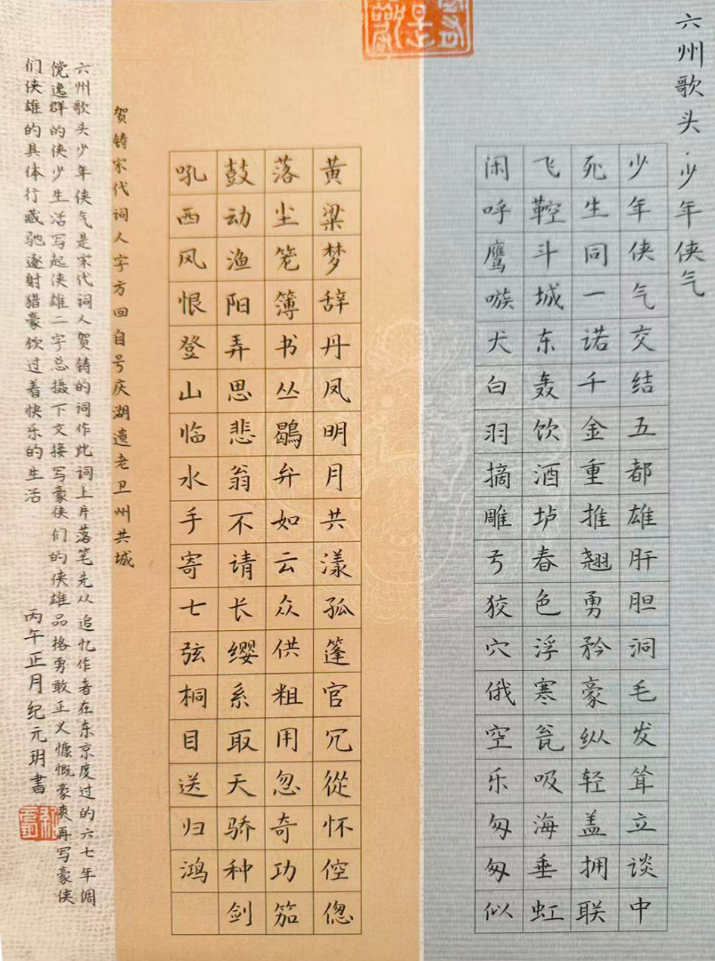 六州歌头·少年侠气
少年侠气交结五都雄肝胆洞毛发耸立谈中
死生同一诺千金重推翘勇矜豪纵轻盖拥联
飞鞚斗城东轰饮酒垆春色浮寒瓮吸海垂虹
闲呼鹰嗾犬白羽摘雕弓狡穴俄空乐匆匆似
黄粱梦辞丹凤明月共漾孤篷官冗從怀倥偬
落尘笼簿书丛鶡弁如云众供粗用忽奇功笳
鼓动渔阳弄思悲翁不请长缨系取天骄种剑
吼西风恨登山临水手寄七弦桐目送归鸿
贺铸宋代词人字方回自号庆湖遗老卫州共城
六州歌头少年侠气是宋代词人贺铸的词作此词上片落笔先从追忆作者在东京度过的六七年倜
傥逸群的侠少生活写起侠雄二字总摄下文接写豪侠们的侠雄品格勇敢正义慷慨豪爽再写豪侠
们侠雄的具体行藏驰逐射猎豪饮过着快乐的生活
丙午正月纪元玥書